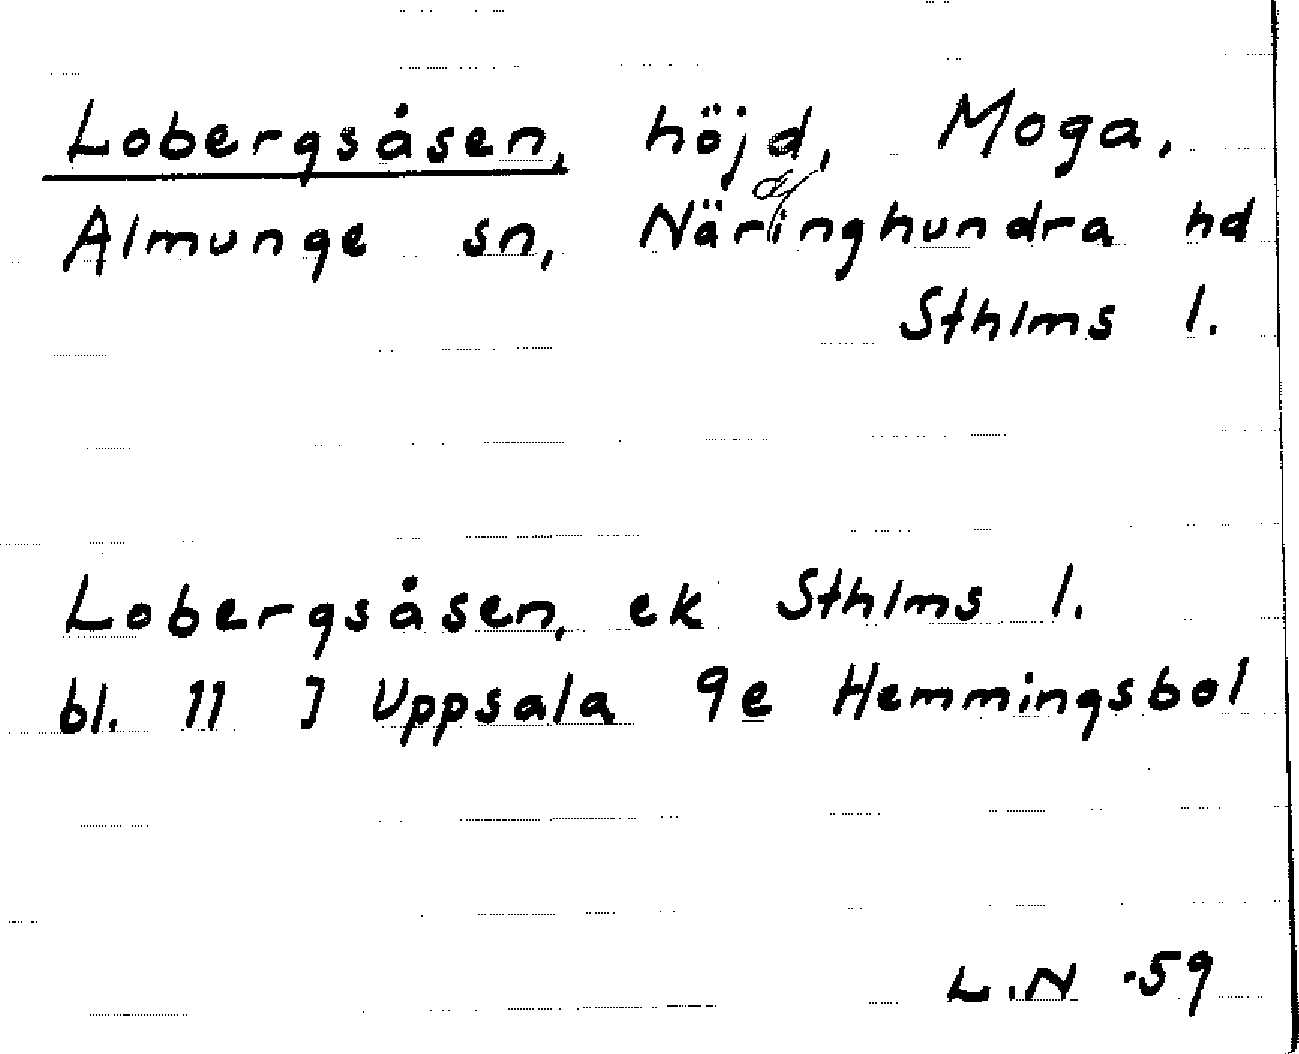 Lobergsåsen, höjd, Moga,
Almunge sn, Näringhundra hd
Sthlms l.
Lobergsåsen, ek Sthlms l.
bl. 11 J Uppsala 9e Hemmingsbol
L.N -59